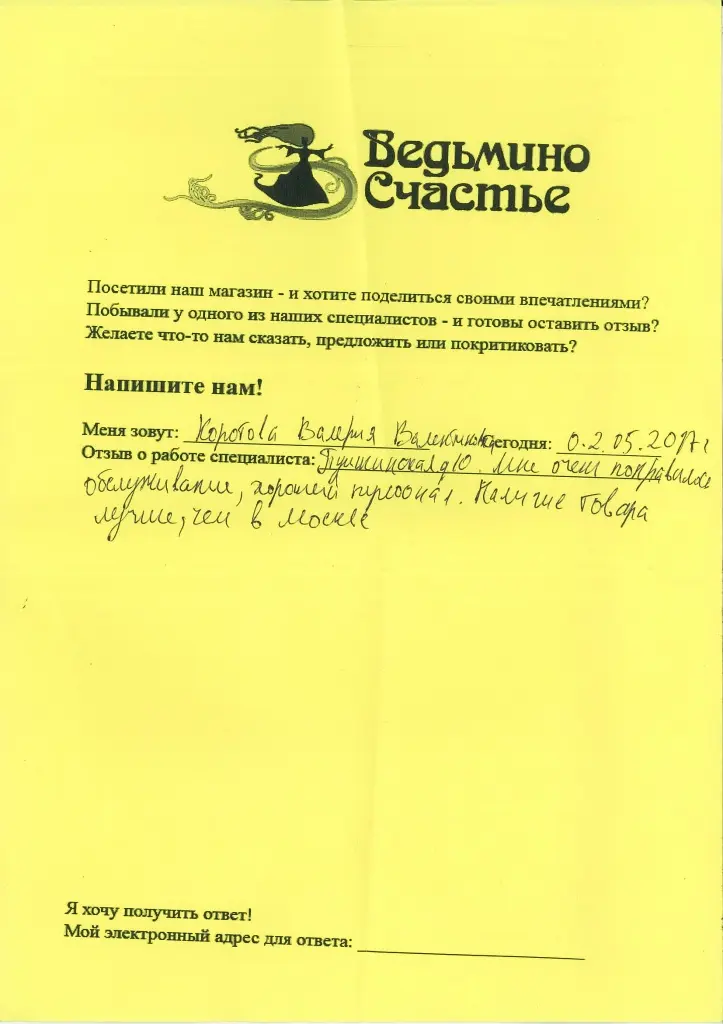 Ведьмино
Счастье
Посетили наш магазин - и хотите поделиться своими впечатлениями?
Побывали у одного из наших специалистов - и готовы оставить отзыв?
Желаете что-то нам сказать, предложить или покритиковать?
Напишите нам!
Меня зовут: Валерия Сегодня: 02.05.2017г
Отзыв о работе специалиста: Пушкинская д10. Мне очень понравилось
обслуживание, хороший персонал. Наличие товара
лучше, чем в Москве
Я хочу получить ответ!
Мой электронный адрес для ответа: